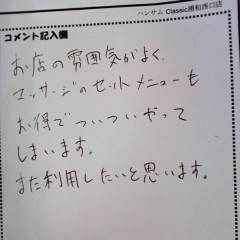 ハンサム Classic浦和西口店
コメント記入欄
お店の雰囲気がよく、
マッサージのセットメニューも
お得でついついやって
しまいます。
また利用したいと思います。